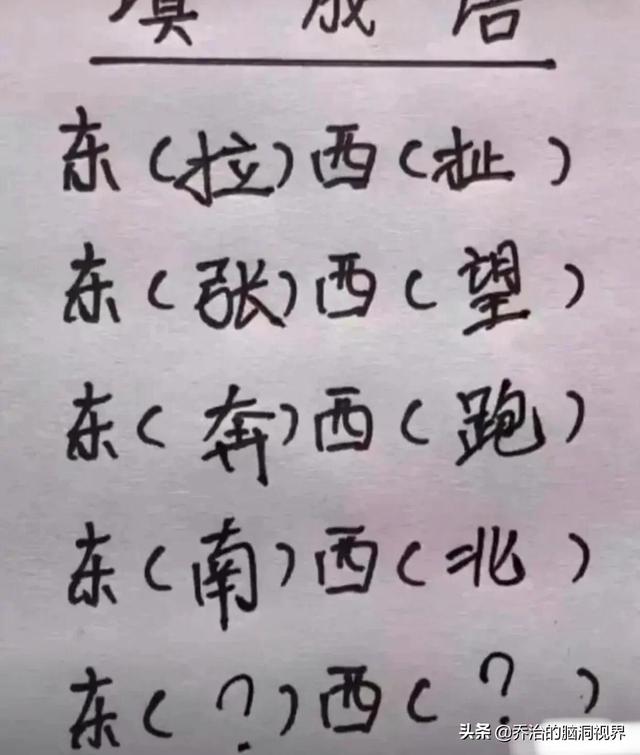 填成语
东(拉)西(扯)
东(张)西(望)
东(奔)西(跑)
东(南)西(北)
东(?)西(?)
头条 @乔治的脑洞视界